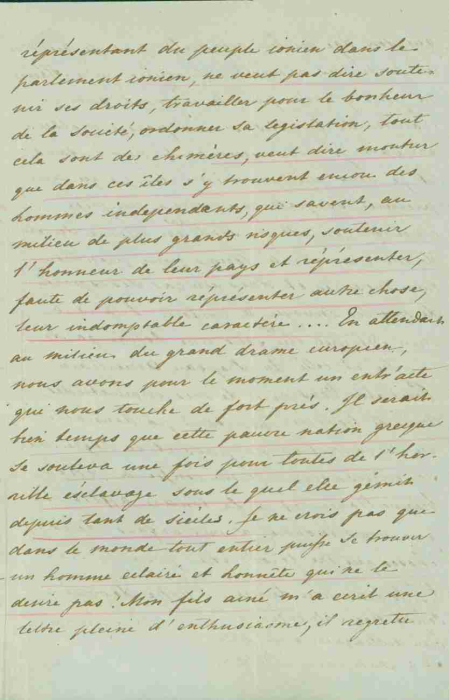 réprésentant du peuple ionien dans le
parlement ionien, ne veut pas dire soute-
nir ses droits, travailler pour le bonheur
de la société, ordonner sa legistation, tout
cela sont des chimères, veut dire montrer
que dans ces îles s'y trouvent encore des
hommes independants, que savent, au
milieu de plus grands risques, soutenir
l'honneur de leur pays et réprésenter,
faute de pouvoir réprésenter autre chose,
leur indomptable caractère .... En attendant
au milieu du grand drame européen,
nous avons pour le moment un entr'acte
qui nous touche de fort prés. Il serait
bien temps que cette pauvre nation grecque
se souleva une fois pour toutes de l'hor-
rible ésclavage sous le quel elle gémit
depuis tant de siécles. Je ne crois pas que
dans le monde tout entier puisse se trouver
un homme eclairé et honnête qui ne le
desire pas. Mon fils ainé m'a ecrit une
lettre pleine d'enthusiasme, il regrette